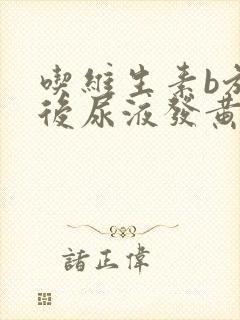 喫維生素b
後尿液發黃
諸正偉